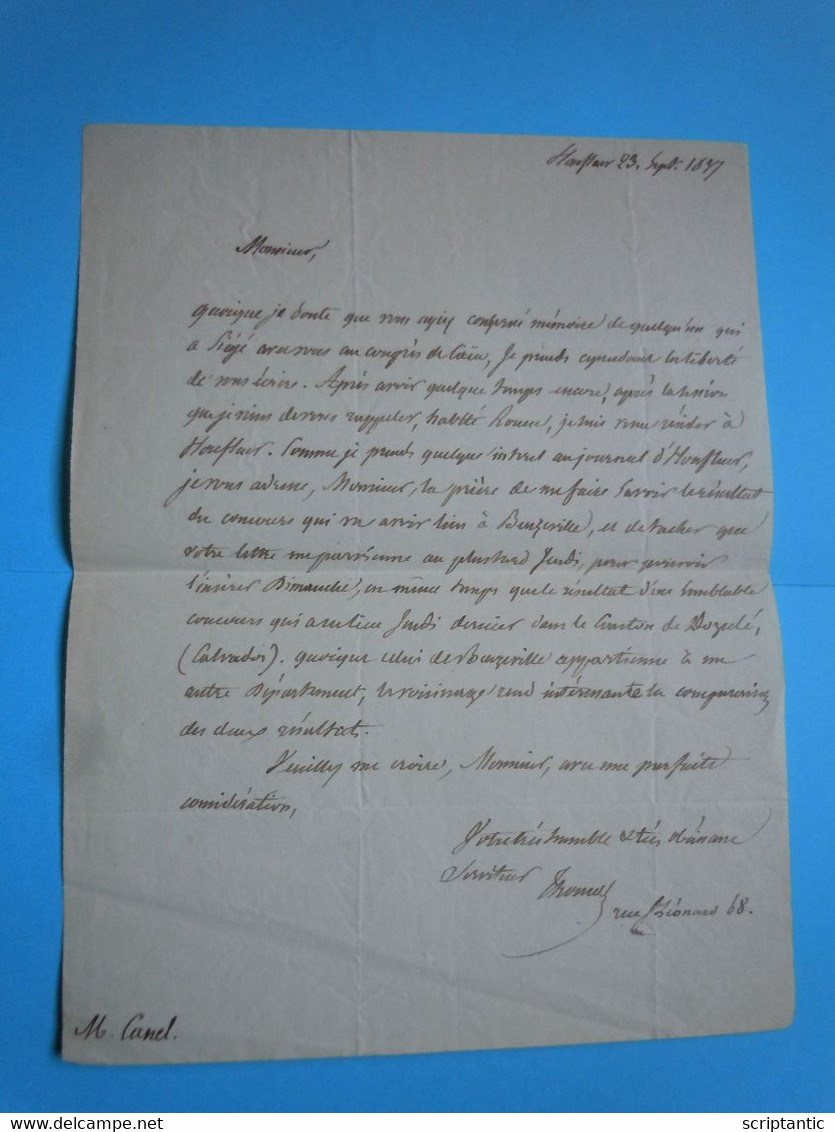 Honfleur 23. Sept. 1837
Monsieur,
quoique je doute que vous ayez conservé mémoire de quelqu'un qui
a siégé avec vous au congrès de Caen, je prends cependant la liberté
de vous écrire. Après avoir quelque temps encore, après la session
que je viens de vous rappeler, habité Rouen, je suis venu résider à
Honfleur. Comme je prends quelque intérêt au journal d'Honfleur,
je vous adresse, Monsieur, la prière de me faire savoir le résultat
du concours qui va avoir lieu à Beuzeville, et de tâcher que
votre lettre me parvienne au plus tard Jeudi, pour pouvoir
l'insérer Dimanche, en même temps que le résultat d'un semblable
concours qui a eu lieu Jeudi dernier dans le Canton de Dozulé,
(Calvados). quoique celui de Beuzeville appartienne à un
autre Département, le voisinage rend intéressante la comparaison
des deux résultats.
Veuillez me croire, Monsieur, avec une parfaite
considération,
Votre très humble & très obéissant
Serviteur
rue St Léonard 68.
M. Canel.
scriptantic